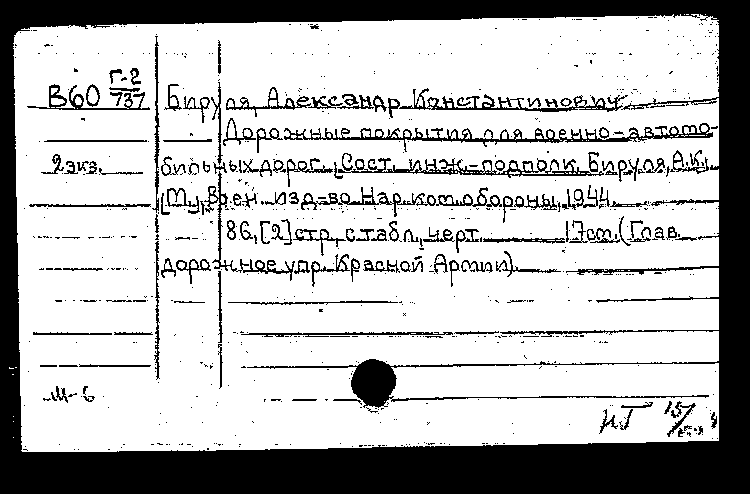 В60 Г-2/737 Бируля, Александр Константинович
Дорожные покрытия для военно-автомо-
2 экз. бильных дорог. [Сост. инж.-подполк. Бируля, А.К.]
[М.], Воен. изд-во Нар. ком. обороны, 1944.
86, [2] стр., с табл., черт. 17 см. (Глав.
дорожное упр. Красной Армии).
М-6